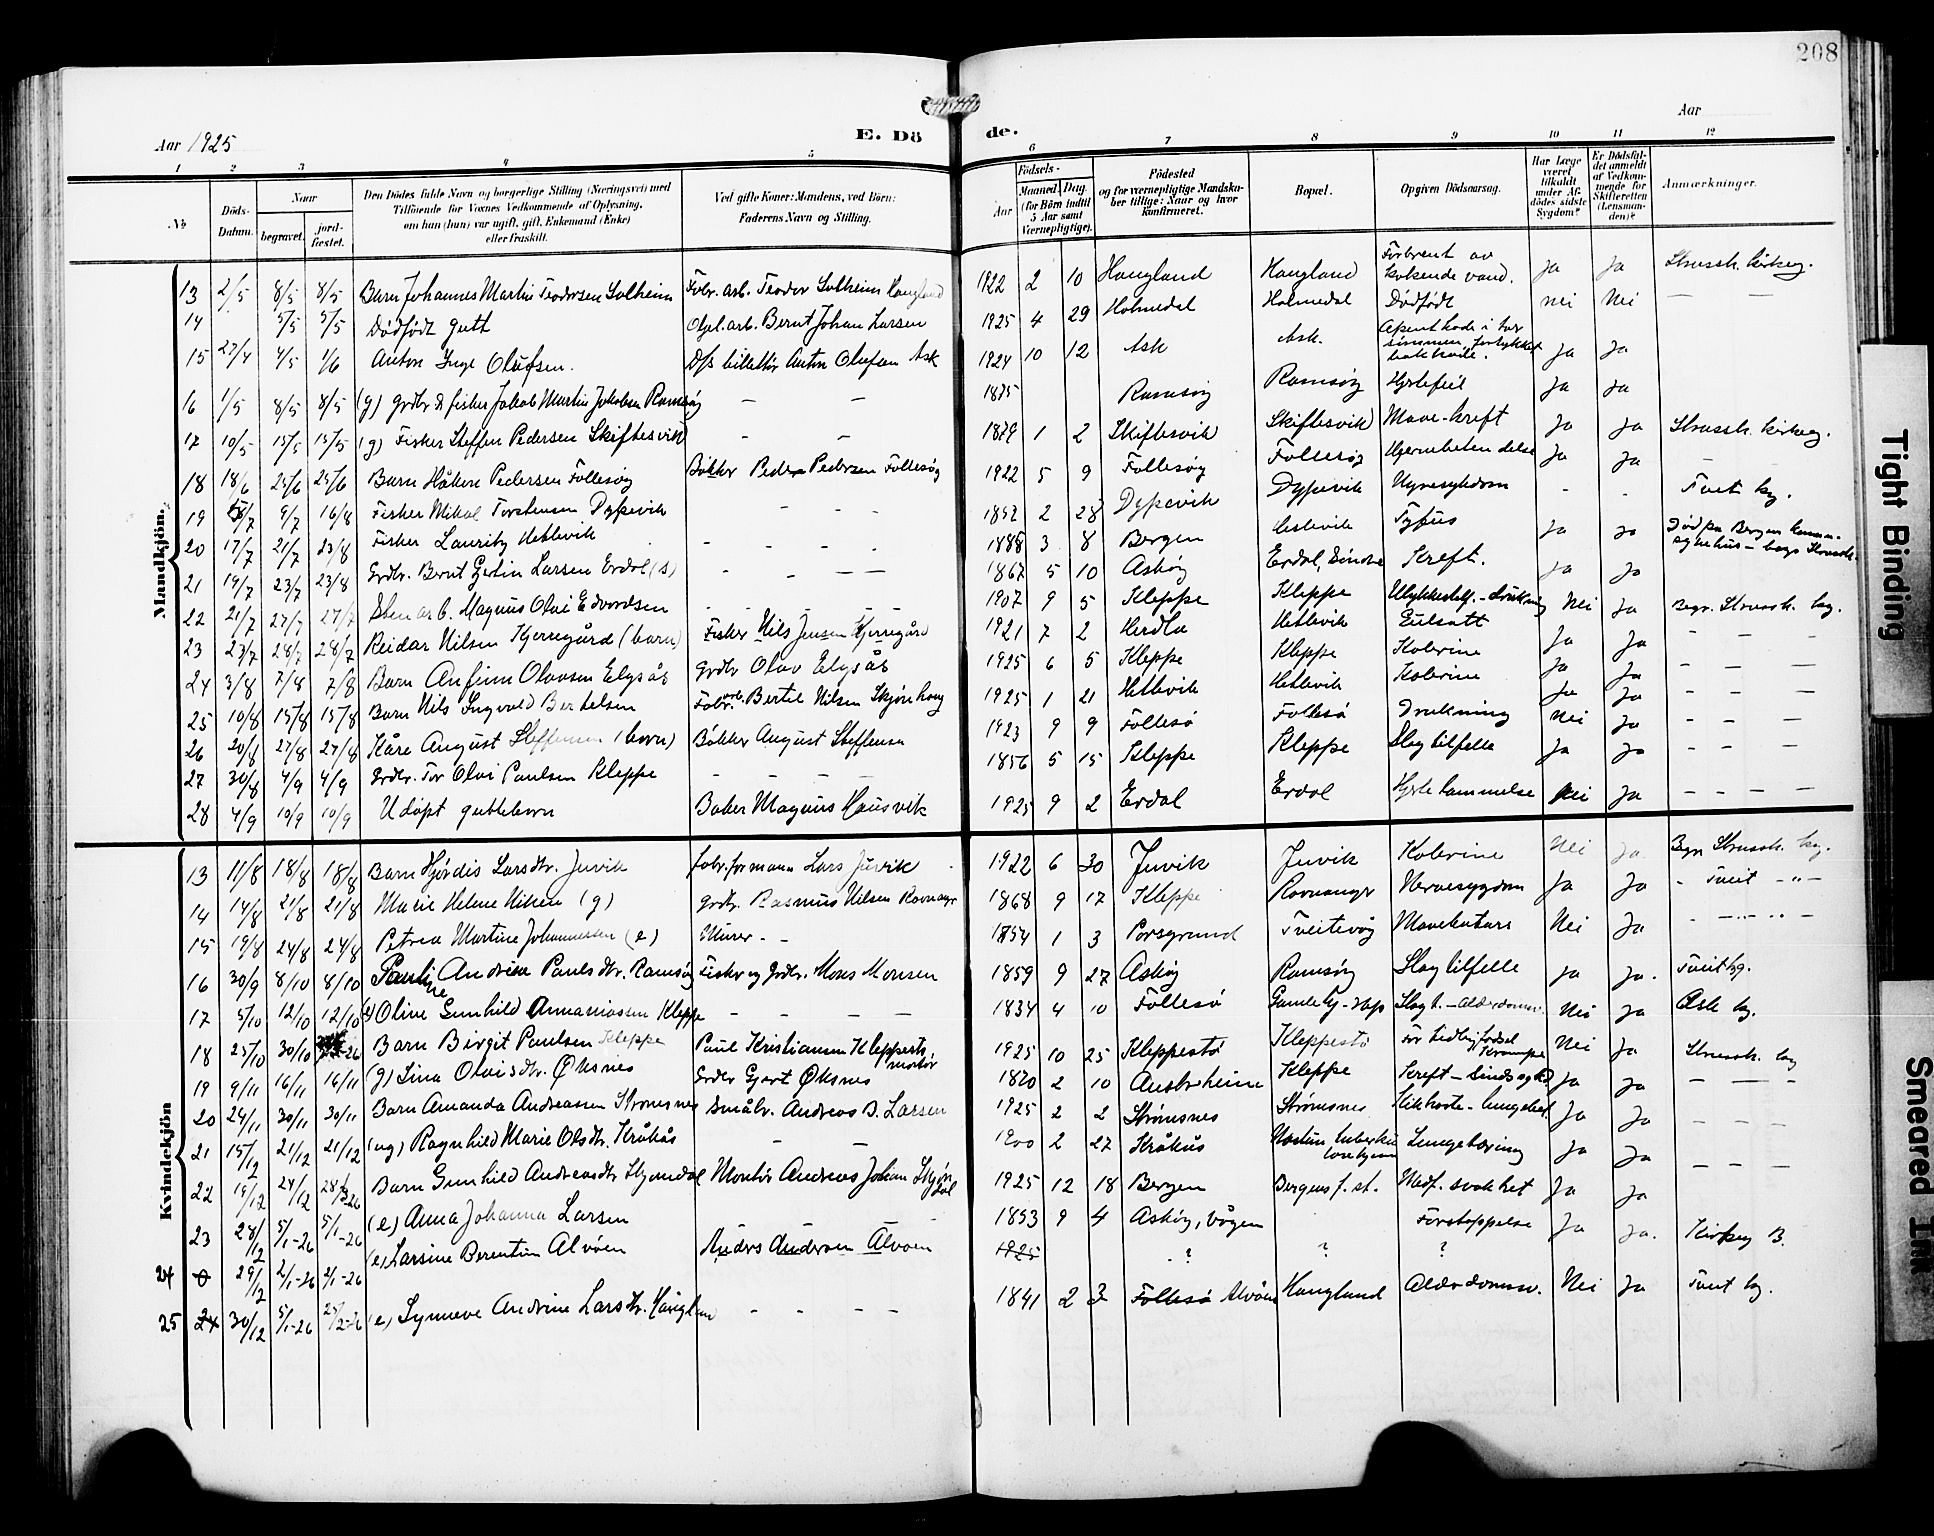 208
Aar 1925
E. Dö de.
Aar
1 2 3 4 5 6 7 8 9 10 11 12
No
Döds-Datum.
Naar
begravet.
jord-fæstet.
Den Dödes fulde Navn og borgerlige Stilling (Næringsvei) med
Tilföiende for Voxnes Vedkommende af Oplysning,
om han (hun) var ugift, gift, Enkemand (Enke)
eller fraskilt.
Ved gifte Koner: Mandens, ved Börn:
Faderens Navn og Stilling.
Födsels-
Aar
Maaned. Dag.
(for Börn indtil
5 Aar samt
Værnepligtige).
Födested
og for værnepligtige Mandska-
ber tillige: Naar og hvor
konfirmeret.
Bopæl.
Opgiven Dödsaarsag.
Har Læge
været
tilkaldt
under Af-
dödes sidste
Sygdom?
Er Dödsfal-
det anmeldt
af Vedkom-
mende for
Skifteretten
(Lensman-
den)?
Anmærkninger.
Mandkjön.
13 2/5 8/5 8/5 Barn Johannes Martin Teodorsen Solheim Fabr. arb. Teodor Solheim Haugland 1922 2 10 Haugland Haugland Forbrent av kokende vand. Ja Ja Strussh. kirkeg.
14 5/5 5/5 Dødfødt gutt Opl. arb. Bernt Johan Larsen 1925 4 29 Holmedal Holmedal Dødfødt Nei Nei — —
15 27/4 4/5 1/6 Anton Inge Olufsen. D/s billettør Anton Olufsen Ask 1924 10 12 Ask Ask. Ja Ja
16 1/5 8/5 8/5 (g) Grdbr & fisker Jakob Martin Jakobsen Ramsøy — — 1875 Ramsøy Ramsøy Hjertefeil Ja Ja
17 10/5 15/5 15/5 (g) Fisker Steffen Pedersen Skiftesvik — — 1879 1 2 Skiftesvik Skiftesvik Mave-kreft Ja Ja Strussh. kirkeg.
18 18/6 25/6 25/6 Barn Håkon Pedersen Follesøy Bøkker Peder Pedersen Follesøy 1922 5 9 Follesøy Follesøy Hjernebetendelse Ja Ja — —
19 5/7 9/7 16/8 Fisker Mikal Torstensen Dypevik - - - 1852 2 28 Dypevik Dypevik Nyresykdom - - Tveit kg.
20 17/7 21/7 23/8 Fisker Lauritz Hetlevik - - - - 1885 3 8 Bergen Hetlevik Tyfus Ja Ja Død på Bergen komm. sykehus — begr. Strussh.
21 19/7 23/7 23/8 Grdbr. Bernt Gjertin Larsen Erdal (s) - - — — 1867 5 10 Askøy Erdal, Kreft. Ja Ja
22 21/7 27/7 27/7 Sten arb. Magnus Olai Edvardsen - - - - 1907 9 5 Kleppe Kleppe Ulykkestilf. - drukning Nei Ja Begr. Strussh. kg.
23 23/7 28/7 28/7 Reidar Nilsen Kjerregård (barn) Fisker Nils Jensen Kjerregård 1921 7 2 Herdla Hetlevik Ja Ja — — —
24 3/8 7/8 7/8 Barn Anfinn Olavsen Elysås Grdbr Olav Elysås 1925 6 5 Kleppe Kleppe Kolerine Ja Ja — — —
25 10/8 15/8 15/8 Barn Nils Ingvald Bertelsen Fabr. arb. Bertel Nilsen Skjønhaug 1925 1 21 Hetlevik Hetlevik Kolerine Ja Ja — — —
26 20/8 27/8 27/8 Kåre August Steffensen (barn) Bøkker August Steffensen 1923 9 9 Follesø Follesø Drukning Nei Ja — — —
27 30/8 4/9 4/9 Grdbr. Tor Olai Paulsen Kleppe — — — — 1856 5 15 Kleppe Kleppe Slagtilfelle Ja Ja — — —
28 4/9 10/9 10/9 Udøpt guttebarn Baker Magnus Hausvik 1925 9 2 Erdal Erdal Hjertelammelse Nei Ja — — — —
Kvindekjön
13 11/8 18/8 18/8 Barn Hjørdis Larsdtr. Juvik Fabr. formann Lars Juvik 1922 6 30 Juvik Juvik Kolerine Nei Ja Begr. Strussh. kg.
14 14/8 21/8 21/8 Marie Helene Nilsen (g) Grdb. Rasmus Nilsen Ravnanger 1868 9 17 Kleppe Ravnangr Nervesygdom Ja Ja - Tveit -"-
15 19/8 24/8 24/8 Petrea Martine Johannessen (e) Murer - - 1854 1 3 Porsgrund Tveitevåg Mavekatarr Nei Ja
16 30/9 8/10 8/10 Pauline Andrine Paulsdtr. Ramsøy Fisker og Grdbr. Mons Monsen 1859 9 27 Askøy Ramsøy Slagtilfelle Ja Ja. Tveit kg.
17 5/10 12/10 12/10 (e) Oline Gunhild Annaniassen Kleppe — — — — 1834 4 10 Follesø Gamle hj. Slagt. - Alderdomssv. Nei Ja Ask kg.
18 25/10 30/10 Barn Birgit Paulsen Kleppe Paul Kristiansen Kleppestø montør 1925 10 25 Kleppestø Kleppestø For tidlig fødsel Krampe Nei Ja Strussh. kg
19 9/11 16/11 16/11 (g) Lina Olaisdtr. Øksnes Grdbr Gjert Øksnes 1870 2 10 Austrheim Kleppe Kreft - Sindssygd. Ja Ja — — —
20 24/11 30/11 30/11 Barn Amanda Andreassen Strømsnes Småbr. Andreas B. Larsen 1925 2 2 Strømsnes Strømsnes Kikhoste - lungebet. Ja Ja — — —
21 15/12 21/12 21/12 (ug) Ragnhild Marie Olsdtr. Kråkås — — 1900 2 27 Kråkås Lungetæring Ja Ja
22 19/12 24/12 28/3 26 Barn Gunhild Andreasdtr Skjøndal Montør Andreas Johan Skjøndal 1925 12 18 Bergen Bergens f. st. Medf. svakhet Ja Ja — — —
23 28/12 5/1-26 5/1-26 (e) Anna Johanna Larsen 1853 9 4 Askøy, Vågen Forstoppelse Ja Ja. Kirkeg B.
24 0 29/12 2/1-26 2/1-26 (e) Larsine Berentine Alvøen Anders Andersen Alvøen 1925 ? ? ?
25 24 30/12 5/1-26 25/2-26 (e) Synneve Andrine Larsdtr. Haugland - - - - 1841 2 3 Follesø Alvøen Haugland Alderdomssv. Nei Ja Tveit kg.
Tight Binding
Smeared Ink